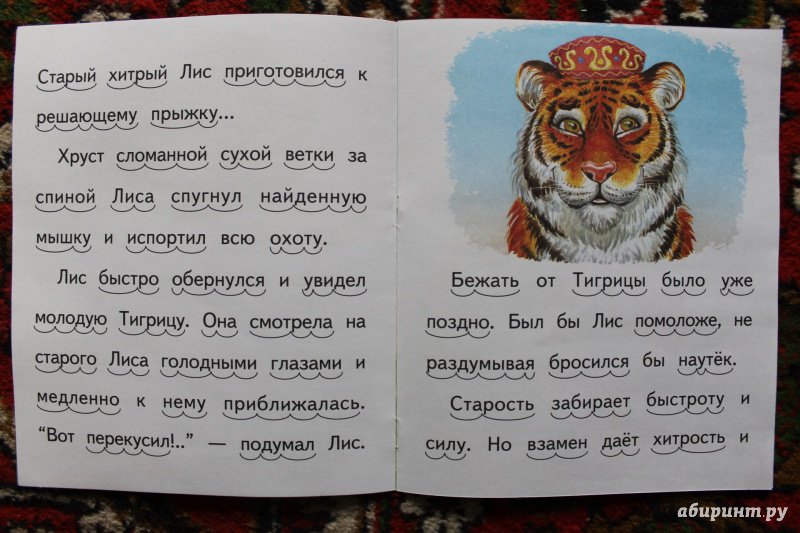 Старый хитрый Лис приготовился к
решающему прыжку...
Хруст сломанной сухой ветки за
спиной Лиса спугнул найденную
мышку и испортил всю охоту.
Лис быстро обернулся и увидел
молодую Тигрицу. Она смотрела на
старого Лиса голодными глазами и
медленно к нему приближалась.
“Вот перекусил!..” — подумал Лис.
Бежать от Тигрицы было уже
поздно. Был бы Лис помоложе, не
раздумывая бросился бы наутёк.
Старость забирает быстроту и
силу. Но взамен даёт хитрость и
абиринт.ру